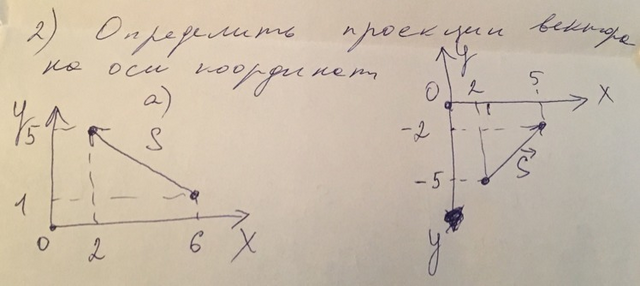 2) Определить проекции вектора
на оси координат
а)
y
5
S
1
0
2
6
X
y
0
2
5
X
-2
-5
S
y